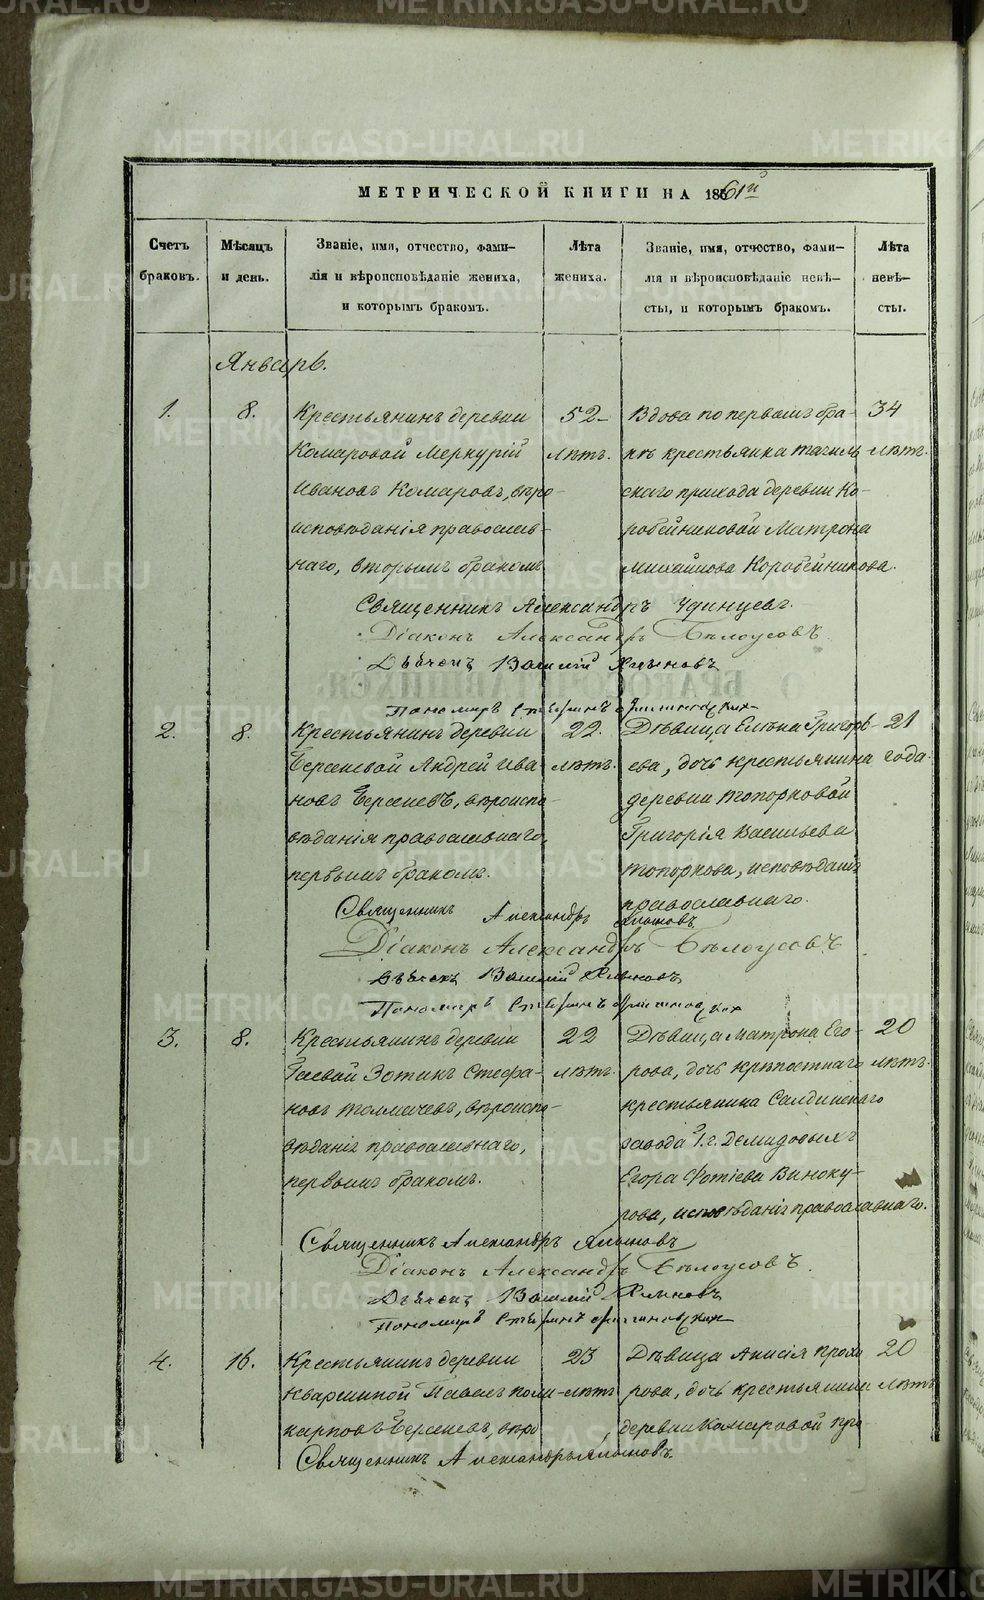 МЕТРИЧЕСКОЙ КНИГИ НА 1861й
Счетъ браковъ.
Мѣсяцъ и день.
Званіе, имя, отчество, фами-
лія и вѣроисповѣданіе жениха,
и которымъ бракомъ.
Лѣта
жениха.
Званіе, имя, отчество, фами-
лія и вѣроисповѣданіе невѣ-
сты, и которымъ бракомъ.
Лѣта
невѣ-
сты.
Январь.
1.
8.
Крестьянинъ деревни
Комаровой Меркурій
Ивановъ Комаровъ, вѣро-
исповѣданія православ-
наго, вторымъ бракомъ
52
лѣтъ.
Вдова по первомъ бра-
кѣ крестьянка Тагиль-
скаго прихода деревни Ко-
робейниковой Матрона
Михайлова Коробейникова.
34
лѣтъ.
Священникъ Александръ Удинцевъ.
Діаконъ Александръ Бѣлоусовъ
Дьячекъ Василій Хлыновъ
Пономарь Стефанъ
2.
8.
Крестьянинъ деревни
Берсеневой Андрей Ива
новъ Берсеневъ, вѣроиспо-
вѣданія православнаго,
первымъ бракомъ.
22.
лѣтъ.
Дѣвица Елена Григорь-
ева, дочь крестьянина
деревни Топорковой
Григорія Васильева
Топоркова, исповѣданія
православнаго.
21
года.
Священникъ Александръ
Діаконъ Александръ Бѣлоусовъ
Дьячекъ Василій Хлыновъ
Пономарь Стефанъ
3.
8.
Крестьянинъ деревни
Гаевой Зотикъ Стефа-
новъ Толмачевъ, вѣроиспо-
вѣданія православнаго,
первымъ бракомъ.
22
лѣтъ.
Дѣвица Матрона Его-
рова, дочь крѣпостнаго
крестьянина Салдинскаго
завода Г.г. Демидовыхъ
Егора Фотіева Виноку-
рова, исповѣданія православнаго.
20
лѣтъ.
Священникъ Александръ
Діаконъ Александръ Бѣлоусовъ.
Дьячекъ Василій Хлыновъ
Пономарь Стефанъ
4.
16.
Крестьянинъ деревни
Кваршиной Павелъ Поли-
карповъ Берсеневъ, вѣро
23
лѣтъ
Дѣвица Анисія Прохо
рова, дочь крестьянина
деревни Комаровой Про-
20
лѣтъ
Священникъ Александръ
METRIKI.GASO-URAL.RU